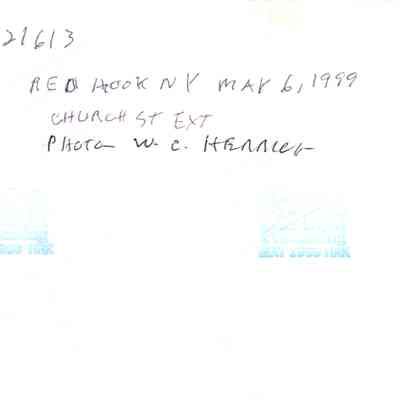 21613
RED HOOK NY MAY 6, 1999
CHURCH ST EXT
PHOTO W. C. HERRICK